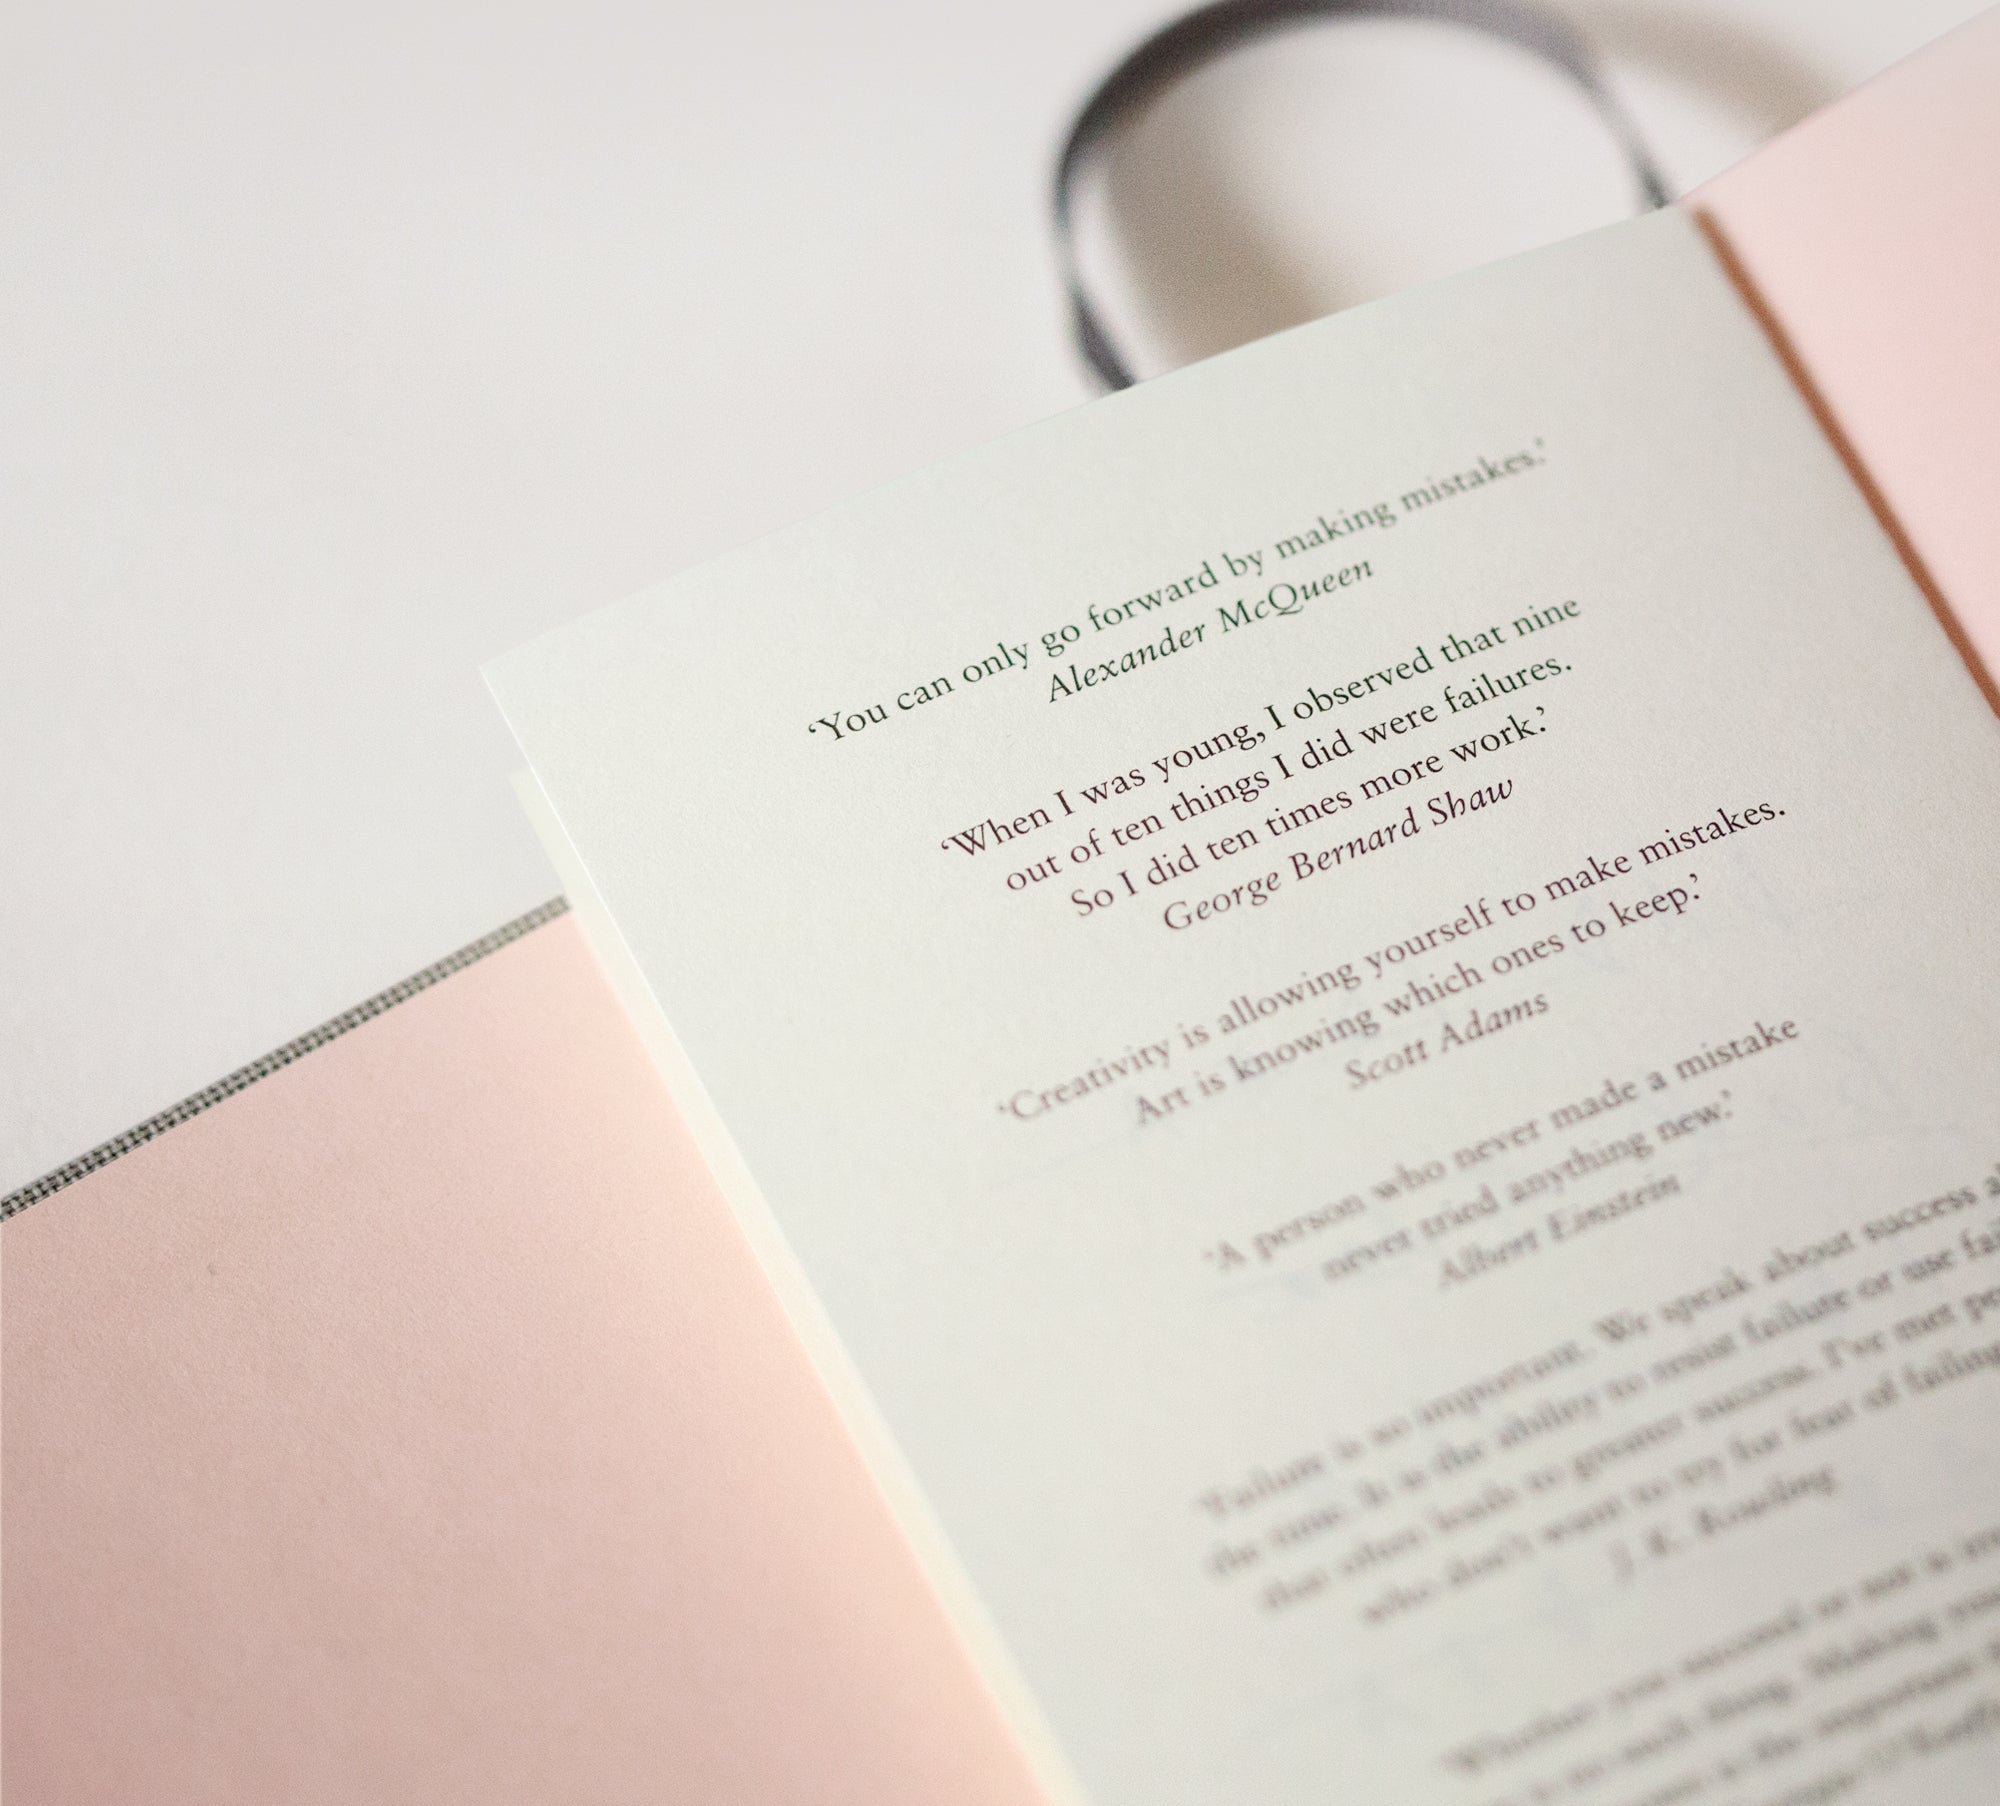 ‘You can only go forward by making mistakes.’
Alexander McQueen
‘When I was young, I observed that nine
out of ten things I did were failures.
So I did ten times more work.’
George Bernard Shaw
‘Creativity is allowing yourself to make mistakes.
Art is knowing which ones to keep.’
Scott Adams
‘A person who never made a mistake
never tried anything new.’
Albert Einstein
‘Failure is so important. We speak about success
the time. It is the ability to resist failure or use
that often leads to greater success. I’ve met
who don’t want to try for fear of failing
J. K. Rowling
‘Whether you succeed or not is
is no such thing. Making your
is the important